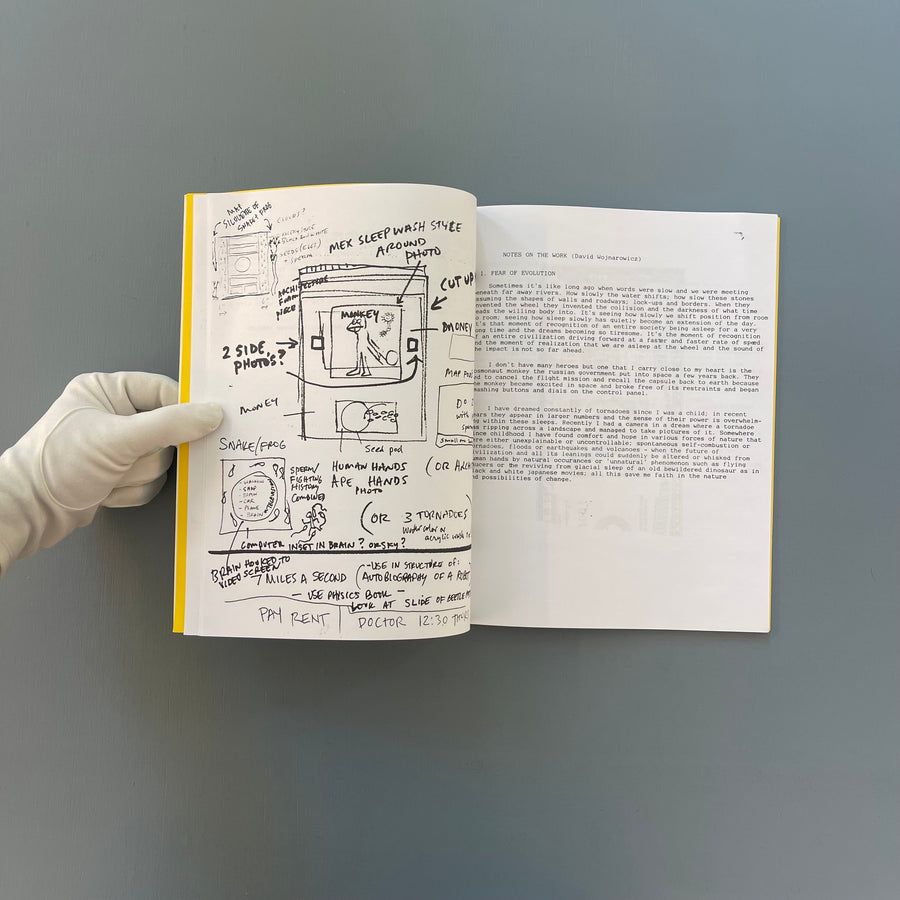 MAP
SILOUETTE OF
SNAKE + FROG
CLOUDS?
SEEDS (EGGS)
+ SPERM
MEX SLEEP WASH STYLE
AROUND
PHOTO
CUT UP
ARCHITECTURE
FORM
MONKEY
2 SIDE
PHOTO'S?
MONEY
MAP
DO
with
Seed pod
SNAKE/FROG
- SAW
- CAR
- PLANE
- BRAIN
SPERM/
FIGHTING
HISTORY
COMBINED
HUMAN HANDS
APE HANDS
PHOTO
(OR
(OR 3 TORNADOES
watercolor or
acrylic wash
COMPUTER INSET IN BRAIN? OR SKY?
BRAIN HOOKED TO
VIDEO SCREEN
7 MILES A SECOND
(- USE IN STRUCTURE OF:
AUTOBIOGRAPHY OF A
— USE PHYSICS BOOK —
LOOK AT SLIDE OF BEETLE
PAY RENT
DOCTOR 12:30
NOTES ON THE WORK (David Wojnarowicz)
1. FEAR OF EVOLUTION
Sometimes it's like long ago when words were slow and we were meeting
eneath far away rivers. How slowly the water shifts; how slow these stones
assuming the shapes of walls and roadways; lock-ups and borders. When they
nvented the wheel they invented the collision and the darkness of what time
eads the willing body into. It's seeing how slowly we shift position from room
o room; seeing how sleep slowly has quietly become an extension of the day.
t's that moment of recognition of an entire society being asleep for a very
ong time and the dreams becoming so tiresome. It's the moment of recognition
f an entire civilization driving forward at a faster and faster rate of speed
nd the moment of realization that we are asleep at the wheel and the sound of
he impact is not so far ahead.
I don't have many heroes but one that I carry close to my heart is the
osmonaut monkey the russian government put into space a few years back. They
ad to cancel the flight mission and recall the capsule back to earth because
he monkey became excited in space and broke free of its restraints and began
mashing buttons and dials on the control panel.
I have dreamed constantly of tornadoes since I was a child; in recent
ears they appear in larger numbers and the sense of their power is overwhelm-
ng within these sleeps. Recently I had a camera in a dream where a tornadoe
as ripping across a landscape and managed to take pictures of it. Somewhere
ince childhood I have found comfort and hope in various forces of nature that
re either unexplainable or uncontrollable; spontaneous self-combustion or
ornadoes, floods or earthquakes and volcanoes - when the future of
ivilization and all its leanings could suddenly be altered or whisked from
uman hands by natural occurances or 'unnatural' phenomenon such as flying
aucers or the reviving from glacial sleep of an old bewildered dinosaur as in
ack and white japanese movies; all this gave me faith in the nature
nd possibilities of change.